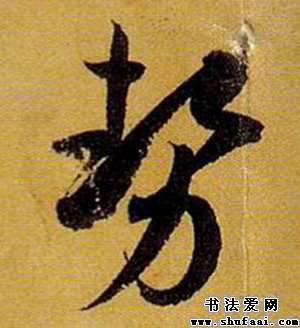 勢
书法爱网
www.shufaai.com